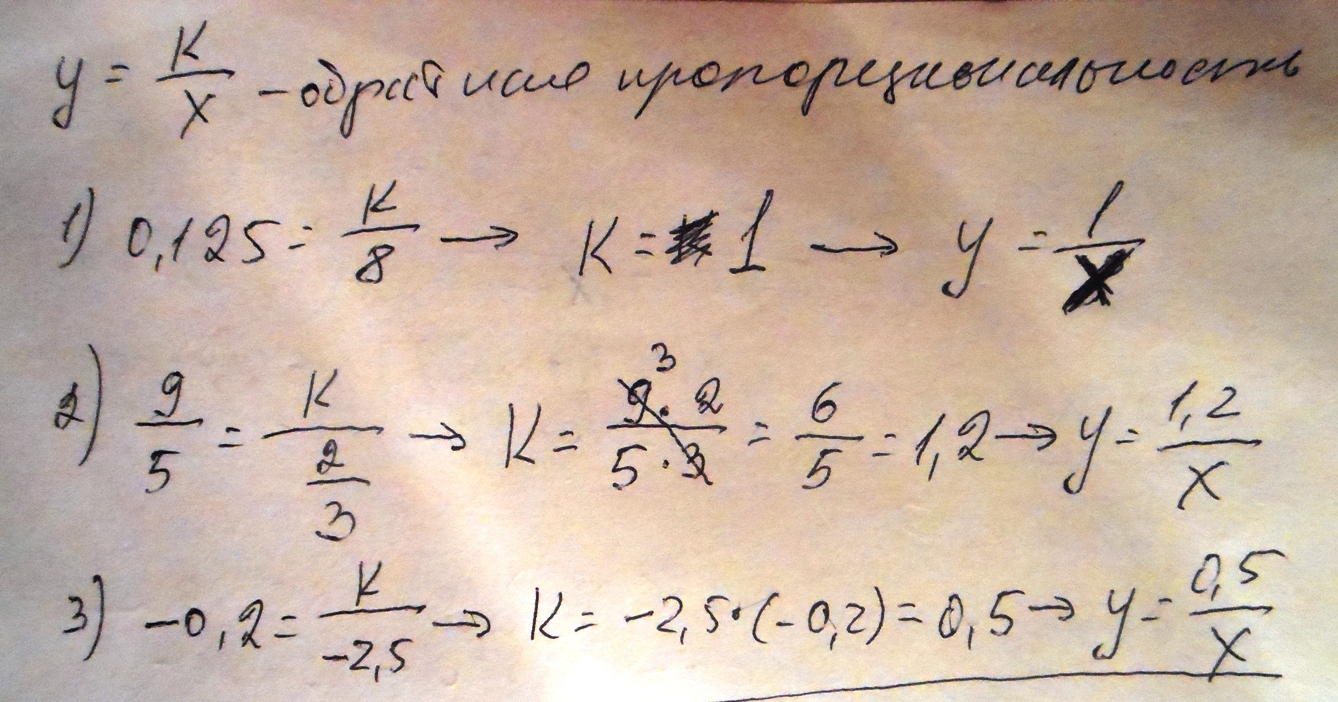 y = К/х - обратная пропорциональность
1) 0,125 = К/8 → К = 1 → y = 1/х
2) 9/5 = К/(2/3) → К = (9³ · 2)/(5 · 3) = 6/5 = 1,2 → y = 1,2/х
3) -0,2 = К/-2,5 → К = -2,5 · (-0,2) = 0,5 → y = 0,5/х